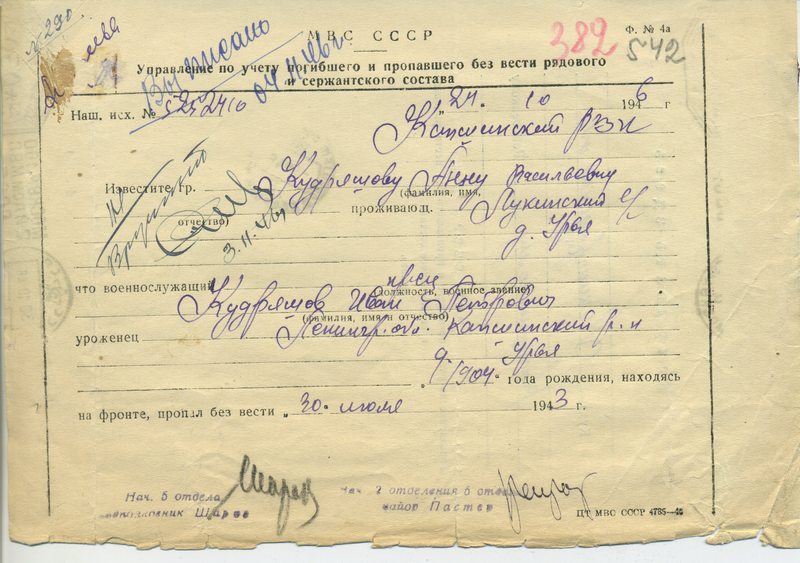 №290
МВС СССР
Ф. № 4а
382
542
Управление по учету погибшего и пропавшего без вести рядового
и сержантского состава
Выписано
04 11 46 г
Наш. исх. № 525241с
"24. 10 1946 г
Капшинский РВК
Известите гр. Кудряшову Анну Васильевну
(фамилия, имя,
отчество)
проживающ. Лукинский с/с
д. Урья
Не
вручит
3.11.46г
что военнослужащий
кр-ец
(должность, военное звание)
Кудряшов Иван Петрович
(фамилия, имя и отчество)
уроженец Ленингр. обл. Капшинский р-н
д. Урья
1904 года рождения, находясь
на фронте, пропал без вести „30" июля 1943 г.
Нач. 5 отдела
подполковник Шаров
Шаров
Нач 2 отделения 5 отдела
майор Пастер
ЦТ МВС СССР 4735—46